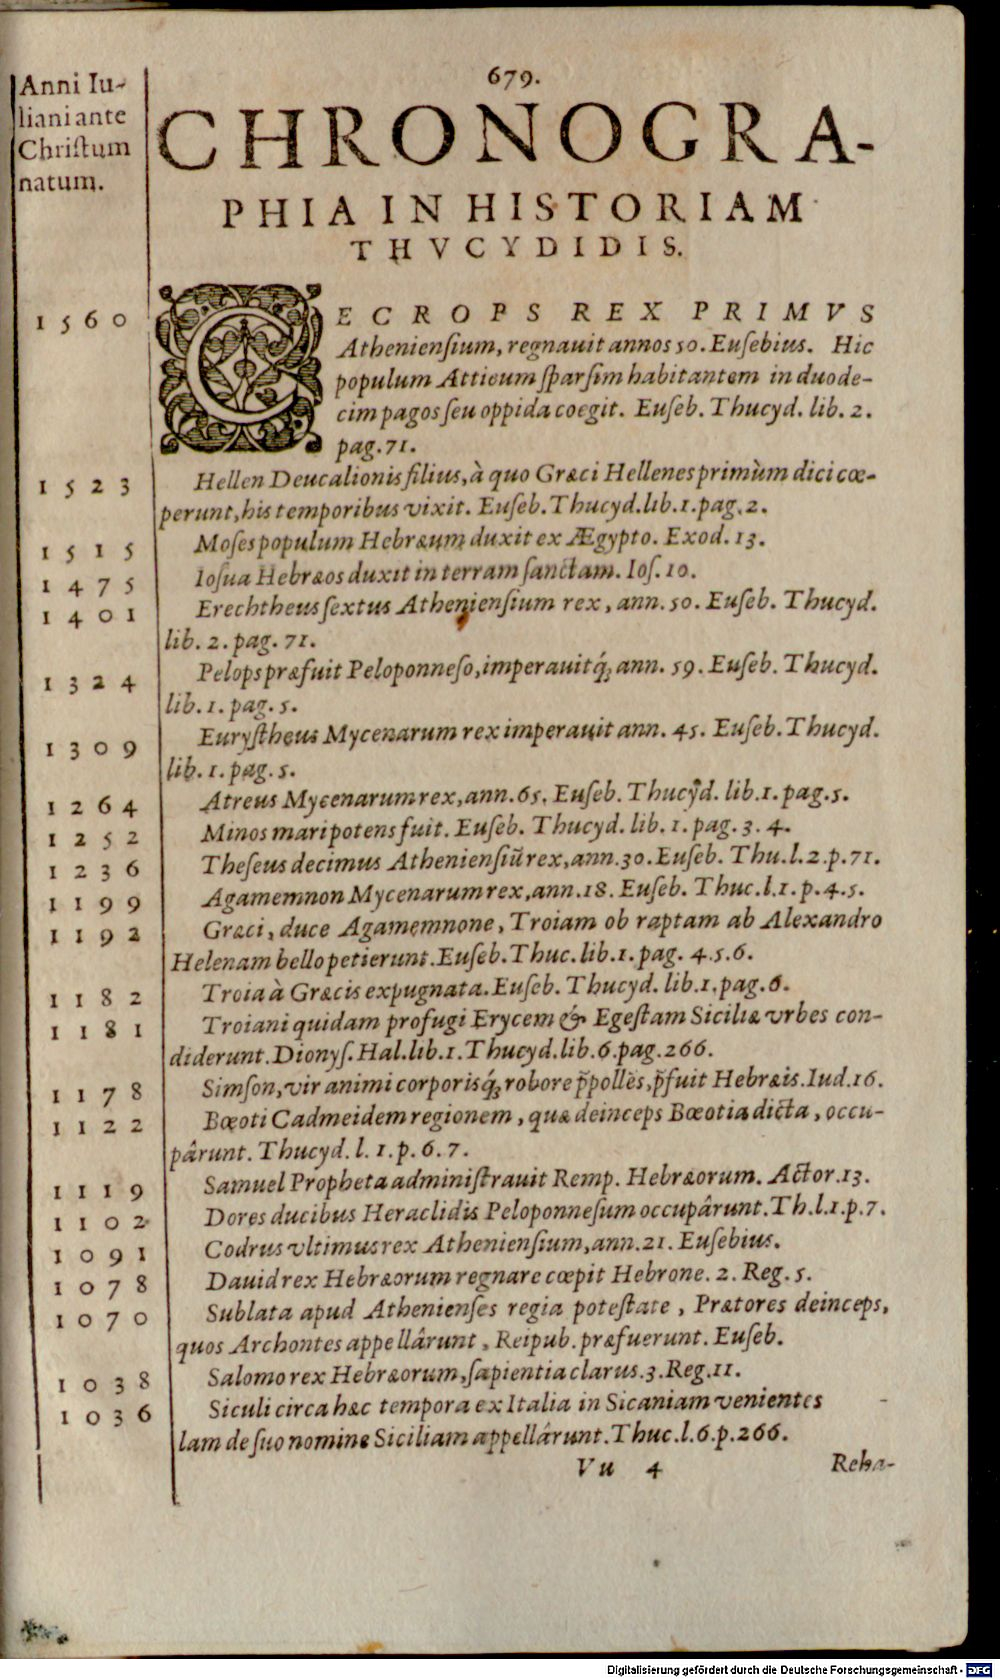 Anni Iu-
liani ante
Christum
natum.
679.
CHRONOGRA-
PHIA IN HISTORIAM
THVCYDIDIS.
1560 CECROPS REX PRIMVS
Atheniensium, regnauit annos 50. Eusebius. Hic
populum Atticum sparsim habitantem in duode-
cim pagos seu oppida coegit. Euseb. Thucyd. lib. 2.
pag. 71.
1523 Hellen Deucalionis filius, à quo Græci Hellenes primùm dici cœ-
perunt, his temporibus vixit. Euseb. Thucyd. lib. 1. pag. 2.
1515 Moses populum Hebræum duxit ex Ægypto. Exod. 13.
1475 Iosua Hebræos duxit in terram sanctam. Ios. 10.
1401 Erechtheus sextus Atheniensium rex, ann. 50. Euseb. Thucyd.
lib. 2. pag. 71.
1324 Pelops præfuit Peloponneso, imperauitq́; ann. 59. Euseb. Thucyd.
lib. 1. pag. 5.
1309 Eurystheus Mycenarum rex imperauit ann. 45. Euseb. Thucyd.
lib. 1. pag. 5.
1264 Atreus Mycenarum rex, ann. 65. Euseb. Thucyd. lib. 1. pag. 5.
1252 Minos mari potens fuit. Euseb. Thucyd. lib. 1. pag. 3. 4.
1236 Theseus decimus Atheniensiũ rex, ann. 30. Euseb. Thu. l. 2. p. 71.
1199 Agamemnon Mycenarum rex, ann. 18. Euseb. Thuc. l. 1. p. 4. 5.
1192 Græci, duce Agamemnone, Troiam ob raptam ab Alexandro
Helenam bello petierunt. Euseb. Thuc. lib. 1. pag. 4. 5. 6.
1182 Troia à Græcis expugnata. Euseb. Thucyd. lib. 1. pag. 6.
1181 Troiani quidam profugi Erycem & Egestam Siciliæ vrbes con-
diderunt. Dionys. Hal. lib. 1. Thucyd. lib. 6. pag. 266.
1178 Simson, vir animi corporisq́; robore p̃pollẽs, p̃fuit Hebræis. Iud. 16.
1122 Bœoti Cadmeidem regionem, quæ deinceps Bœotia dicta, occu-
pârunt. Thucyd. l. 1. p. 6. 7.
1119 Samuel Propheta administrauit Remp. Hebræorum. Actor. 13.
1102 Dores ducibus Heraclidis Peloponnesum occupârunt. Th. l. 1. p. 7.
1091 Codrus vltimus rex Atheniensium, ann. 21. Eusebius.
1078 Dauid rex Hebræorum regnare cœpit Hebrone. 2. Reg. 5.
1070 Sublata apud Athenienses regia potestate, Prætores deinceps,
quos Archontes appellârunt, Reipub. præfuerunt. Euseb.
1038 Salomo rex Hebræorum, sapientia clarus. 3. Reg. 11.
1036 Siculi circa hæc tempora ex Italia in Sicaniam venientes
lam de suo nomine Siciliam appellârunt. Thuc. l. 6. p. 266.
Vu 4 Reha-
Digitalisierung gefördert durch die Deutsche Forschungsgemeinschaft - DFG